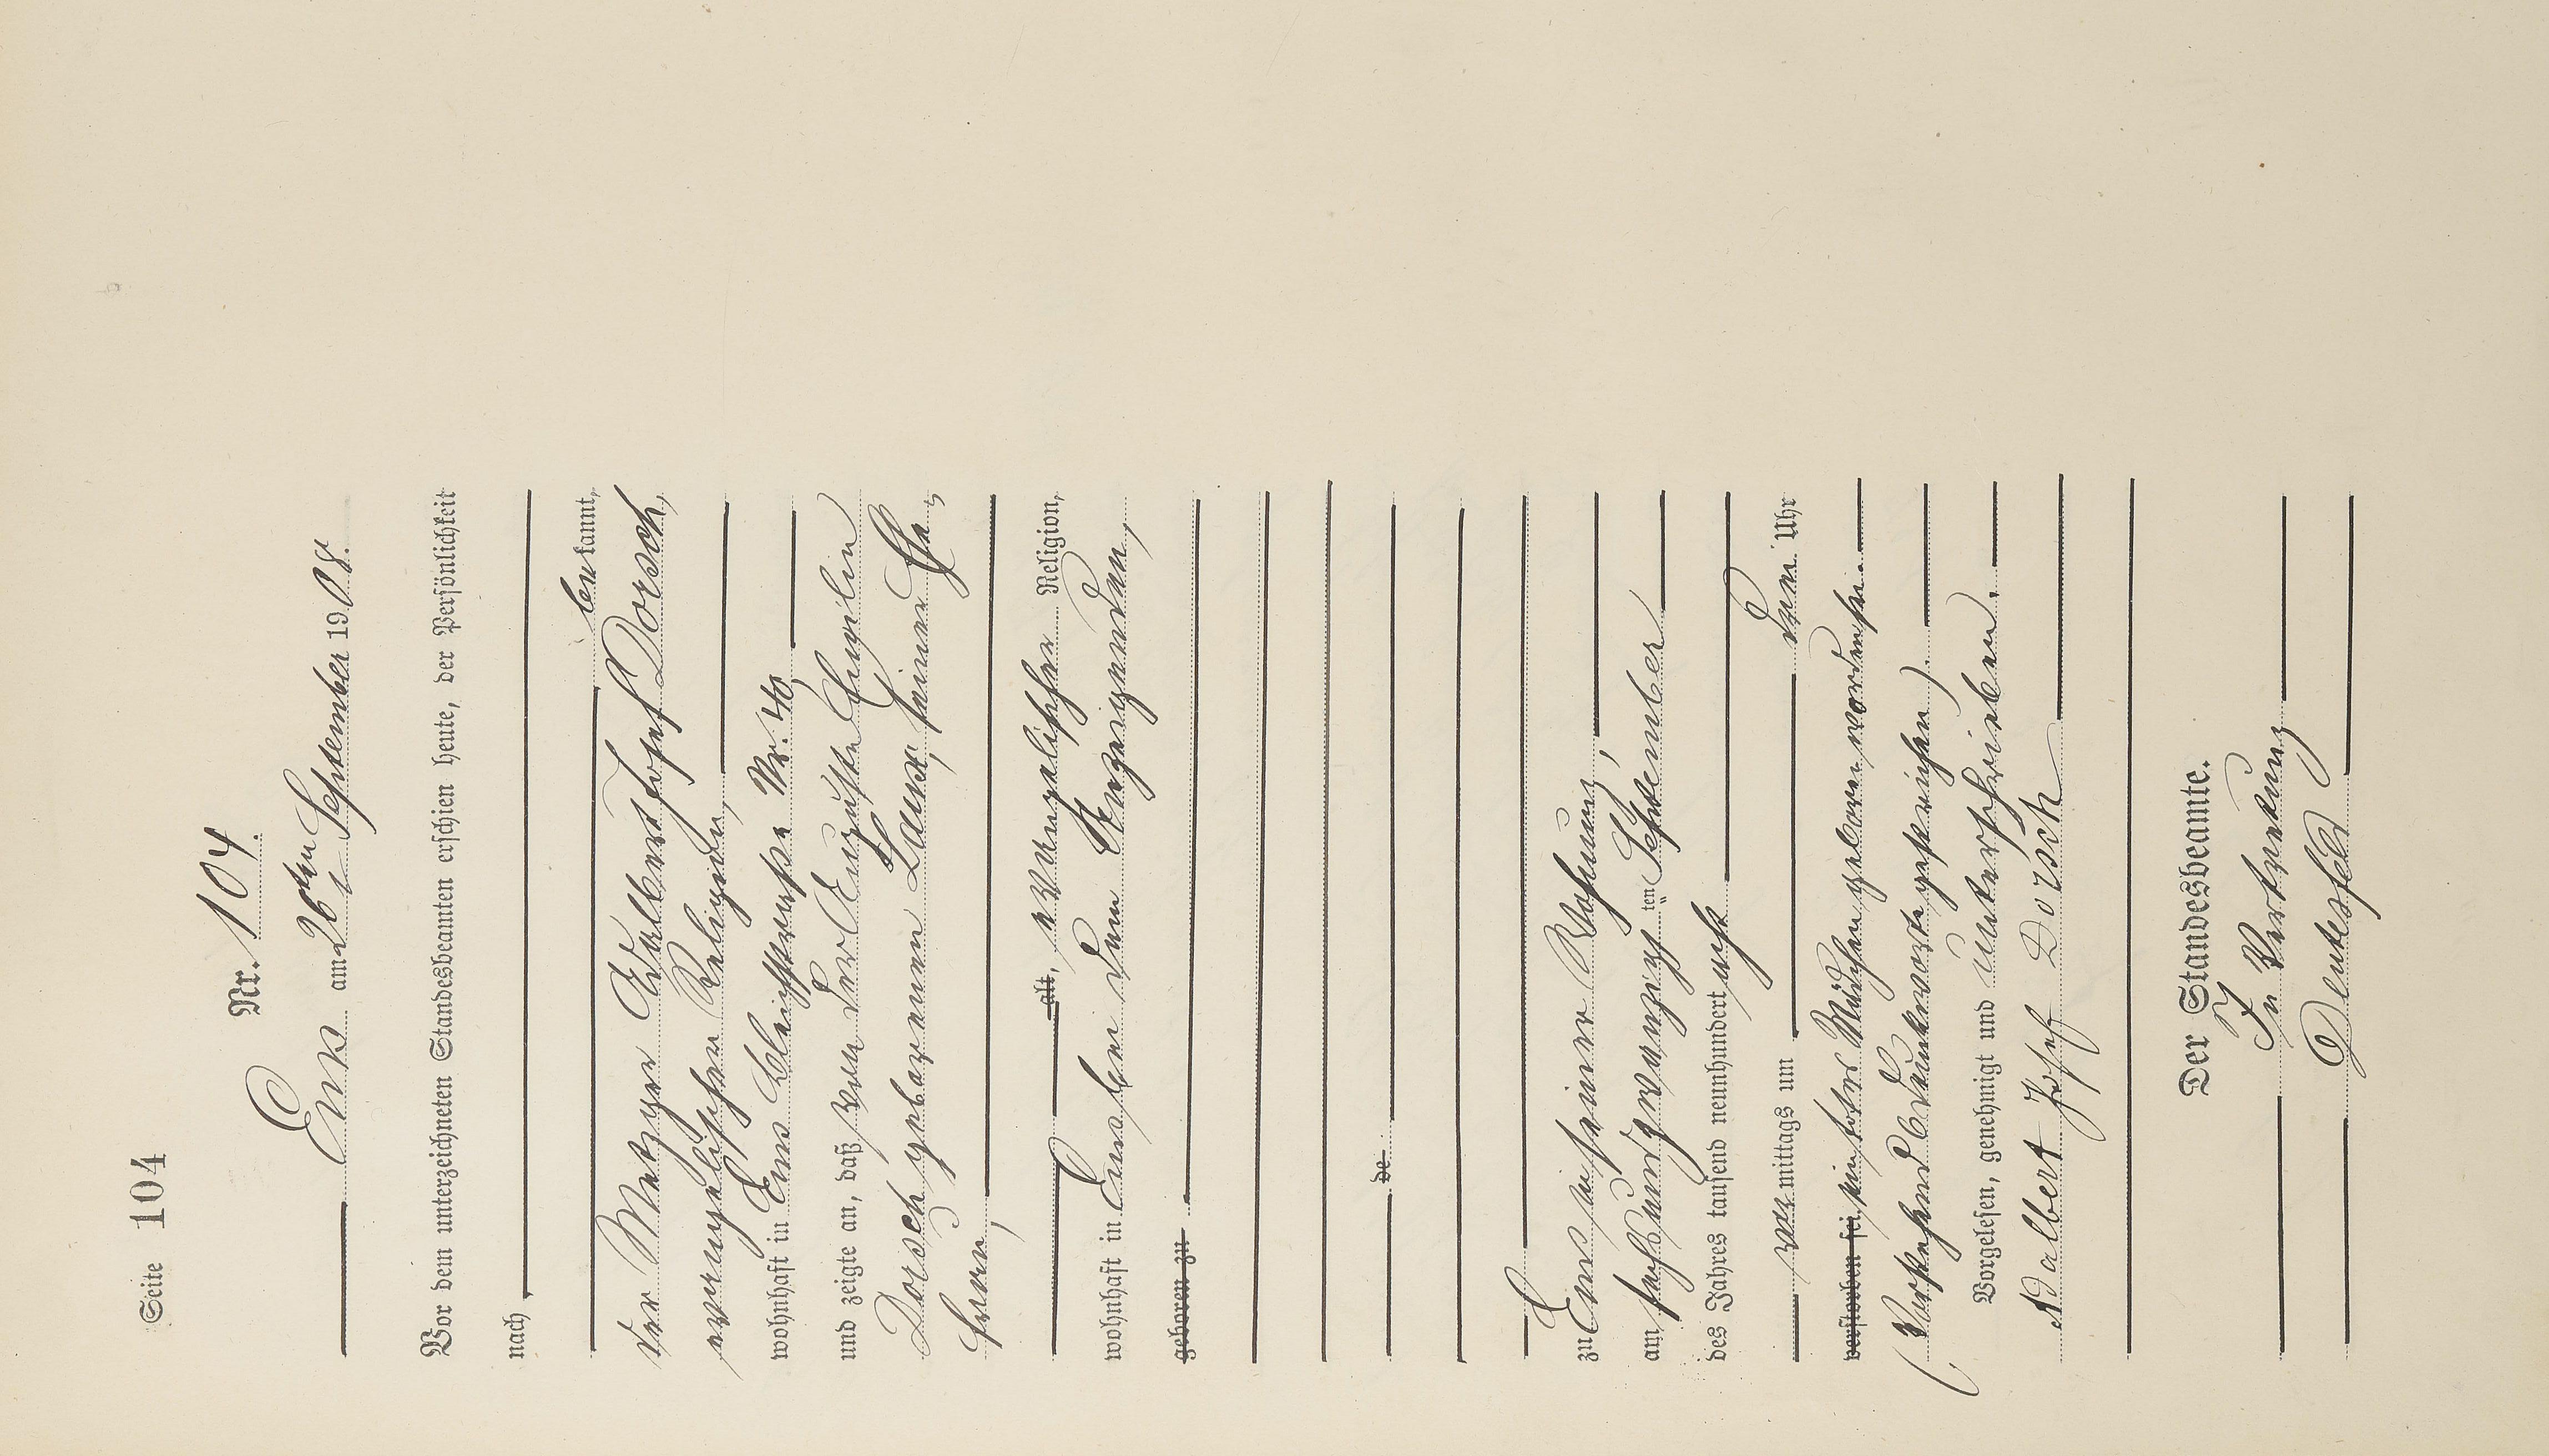 Seite 104
Nr. 104.
Ems am 26ten September 1908.
Vor dem unterzeichneten Standesbeamten erschien heute, der Persönlichkeit
nach
bekannt,
der Metzger Adalbert Josef Dorsch,
evangelischer Religion,
wohnhaft in Ems Bleichstraße Nr. 40,
und zeigte an, daß von der Auguste Emilie
Dorsch geborenen Laux, seiner Ehe-
frau,
alt, evangelischer Religion,
wohnhaft in Ems bei dem Anzeigenden,
geboren zu
de
zu Ems in seiner Wohnung,
am sechsundzwanzigsten September
des Jahres tausend neunhundert acht
vor mittags um drei Uhr
verstorben sei ein totes Mädchen geboren worden sei.
(Vorstehend 6 Druckworte gestrichen).
Vorgelesen, genehmigt und unterschrieben.
Adalbert Josef Dorsch
Der Standesbeamte.
In Vertretung